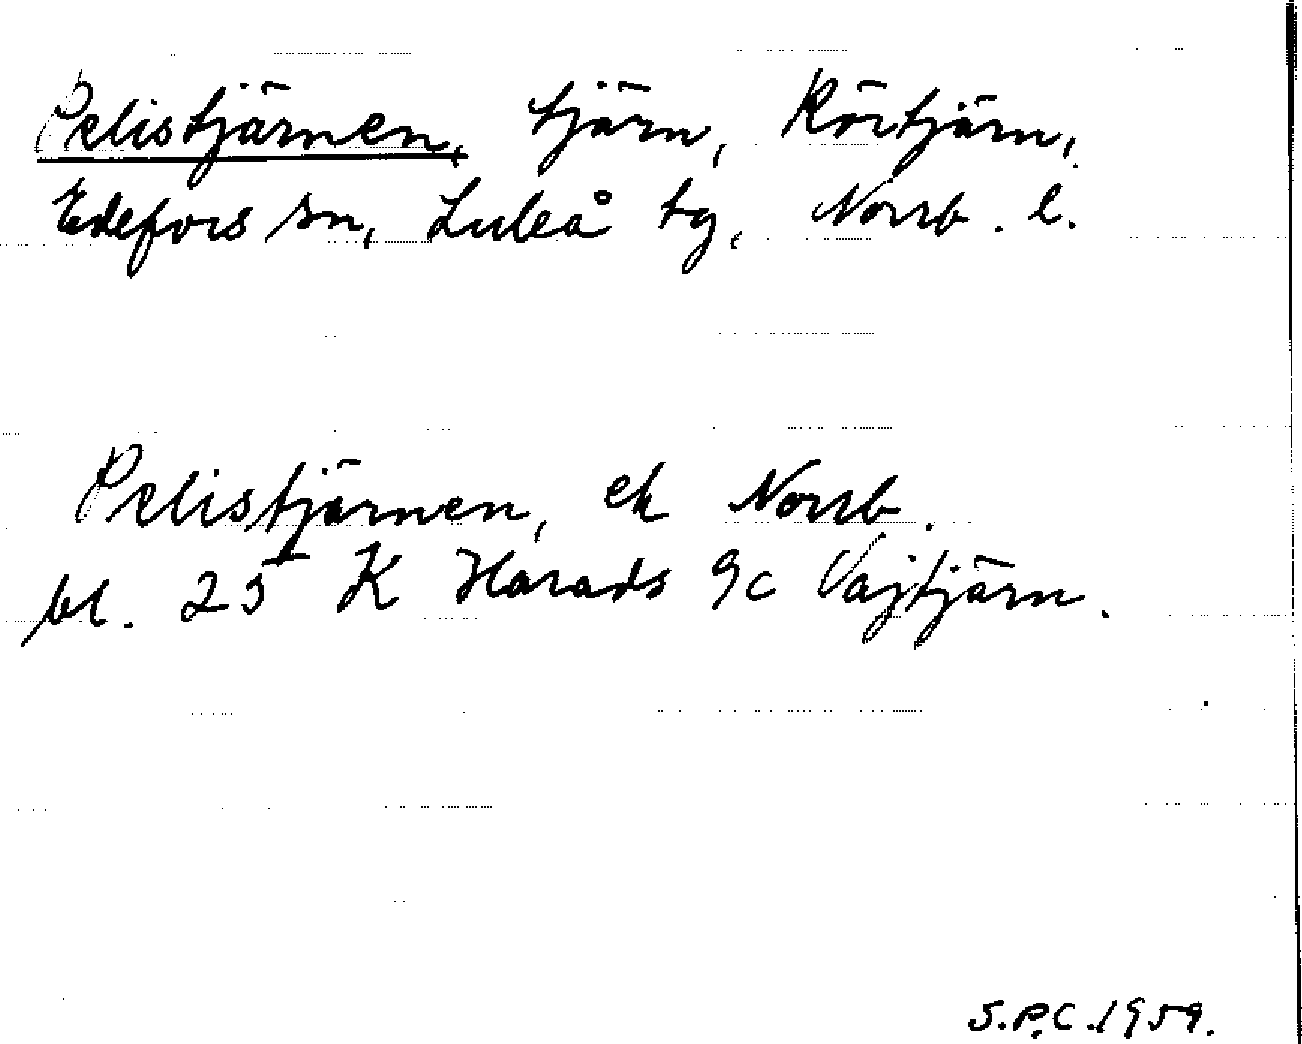 Pelistjärnen, tjärn, Rörtjärn,
Edefors sn, Luleå tg, Norrb. l.
Pelistjärnen, ek Norrb.
bl. 25 K Harads 9c Vajtjärn.
S.P.C. 1959.